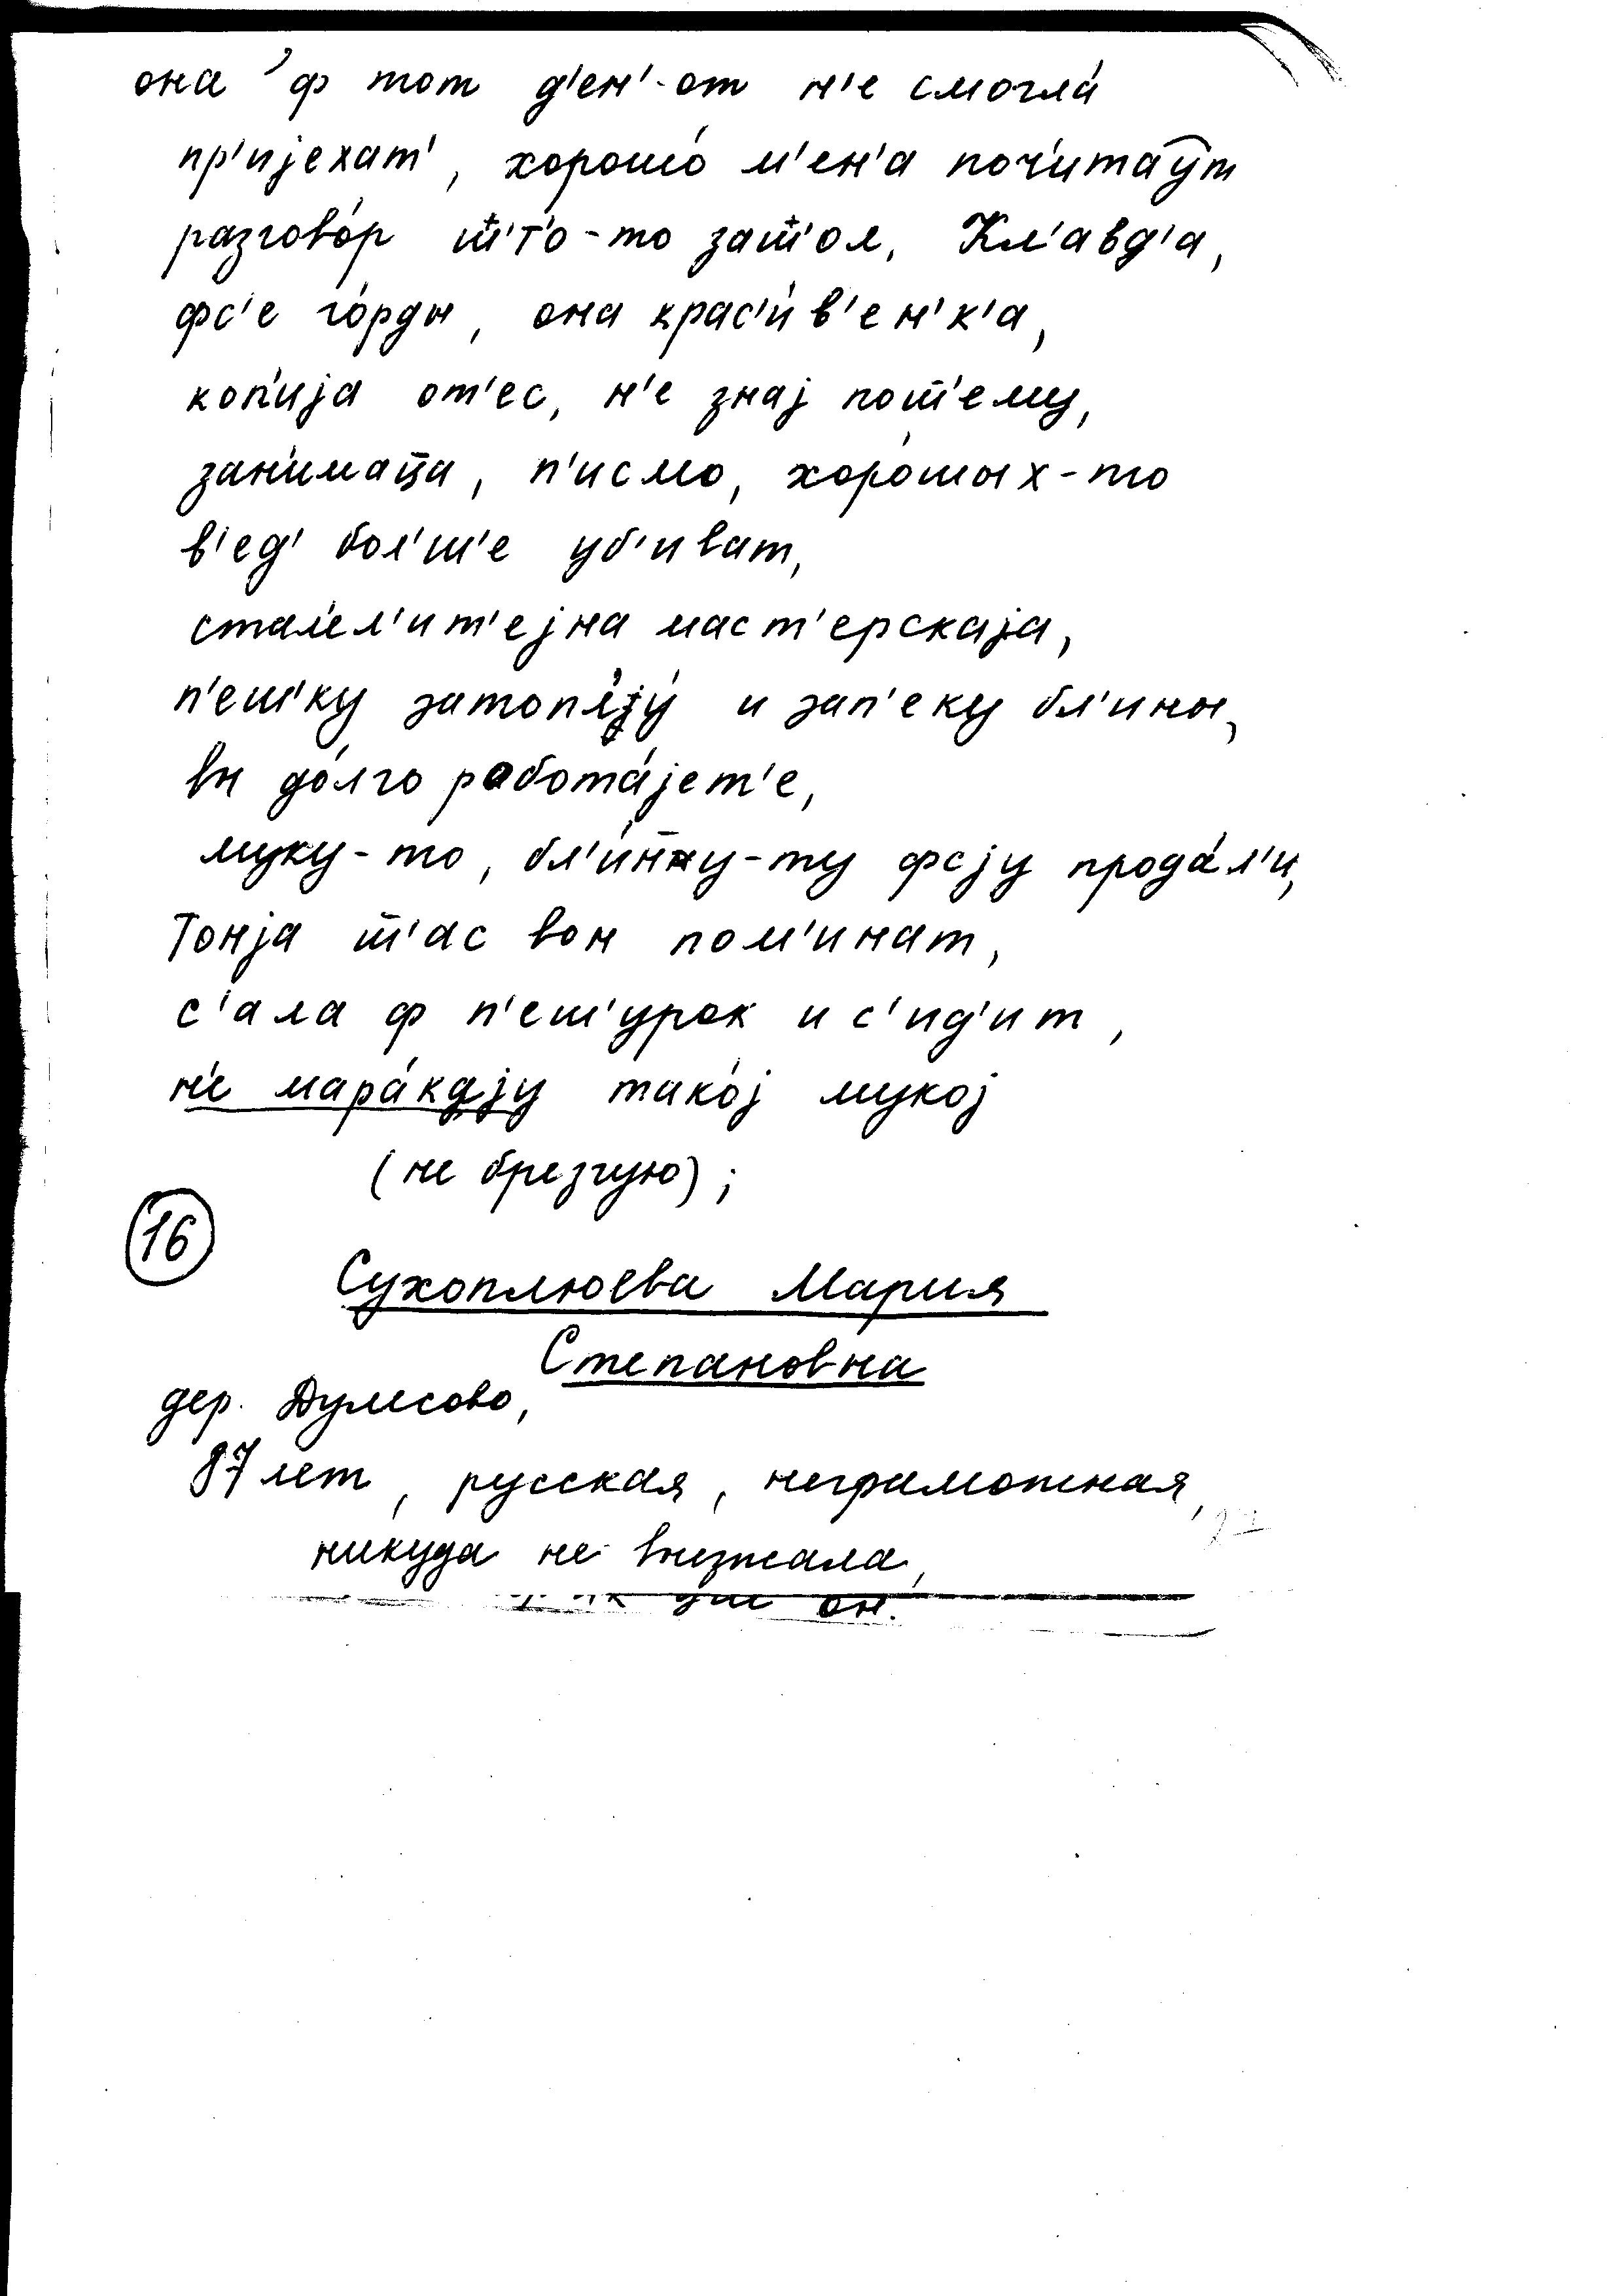 она ф тот д'ен'-от н'е смогла́
пр'ијехат', хорошо́ м'ен'а поч'ита̄ӯт
разгово́р т̄'т'о-то зат̄'ол, Кл'авд'а,
фс'е го́рды, она крас'и́в'ен'к'а,
коп'ија от'ес, н'е знај пот̄'ему,
зан'имац̄а, п'исмо, хоро́шых-то
в'ед' бол'ш'е уб'иват,
стал'ел'ит'ејна маст'ерскаја,
п'еш'ку затопл'ају́ и зап'еку бл'ины,
вы до́лго рабо́та́јет'е,
муку-то, бл'и́нну-ту фсју прода́л'и,
Тонја т̄'ас вон пом'инат,
с'ала ф п'еш'урок и с'ид'ит,
н'е мара́кају тако́ј мукој
(не брезгую);
16
Сухоплюева Мария
Степановна
дер. Думсово,
87 лет, русская, неграмотная,
никуда не выезжала,